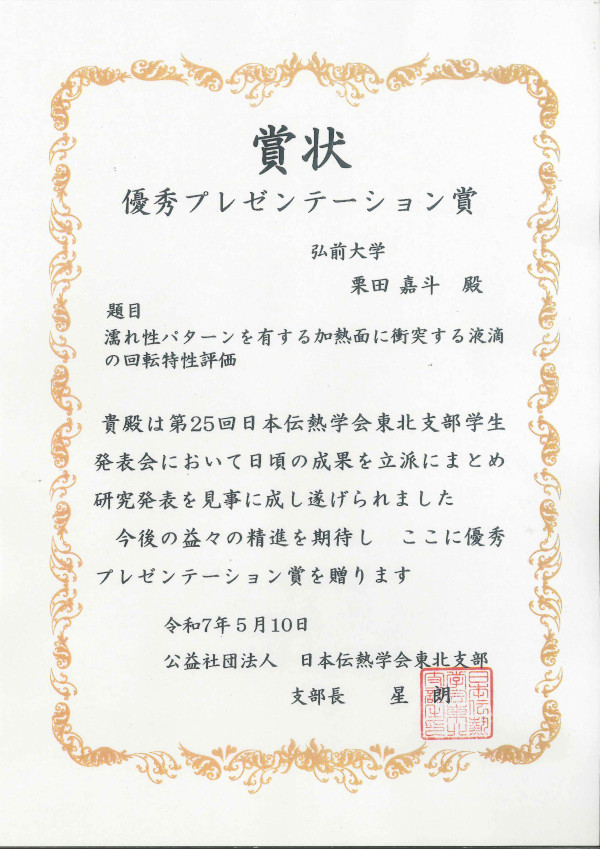 賞状
優秀プレゼンテーション賞
弘前大学
栗田 嘉斗 殿
題目
濡れ性パターンを有する加熱面に衝突する液滴
の回転特性評価
貴殿は第25回日本伝熱学会東北支部学生
発表会において日頃の成果を立派にまとめ
研究発表を見事に成し遂げられました
今後の益々の精進を期待し ここに優秀
プレゼンテーション賞を贈ります
令和7年5月10日
公益社団法人 日本伝熱学会東北支部
支部長 星 朗
日本伝熱
学会東北
支部之印